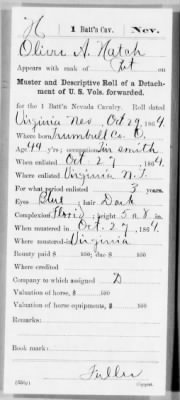 H | 1 Batt'n Cav. | Nev.
Oliver A. Hatch
Appears with rank of Pvt on
Muster and Descriptive Roll of a Detach-
ment of U. S. Vols. forwarded.
for the 1 Batt'n Nevada Cavalry. Roll dated
Virginia Nev, Oct 29, 1864.
Where born Trumbull Co. O.
Age 44 y'rs; occupation Tin smith
When enlisted Oct. 27, 1864.
Where enlisted Virginia N.T.
For what period enlisted 3 years.
Eyes Blue; hair Dark
Complexion Florid; height 5 ft. 8 in.
When mustered in Oct. 27, 1864.
Where mustered in Virginia
Bounty paid $ 100; due $ 100
Where credited
Company to which assigned D
Valuation of horse, $ 100
Valuation of horse equipments, $ 100
Remarks:
Book mark:
Fuller
Copyist.